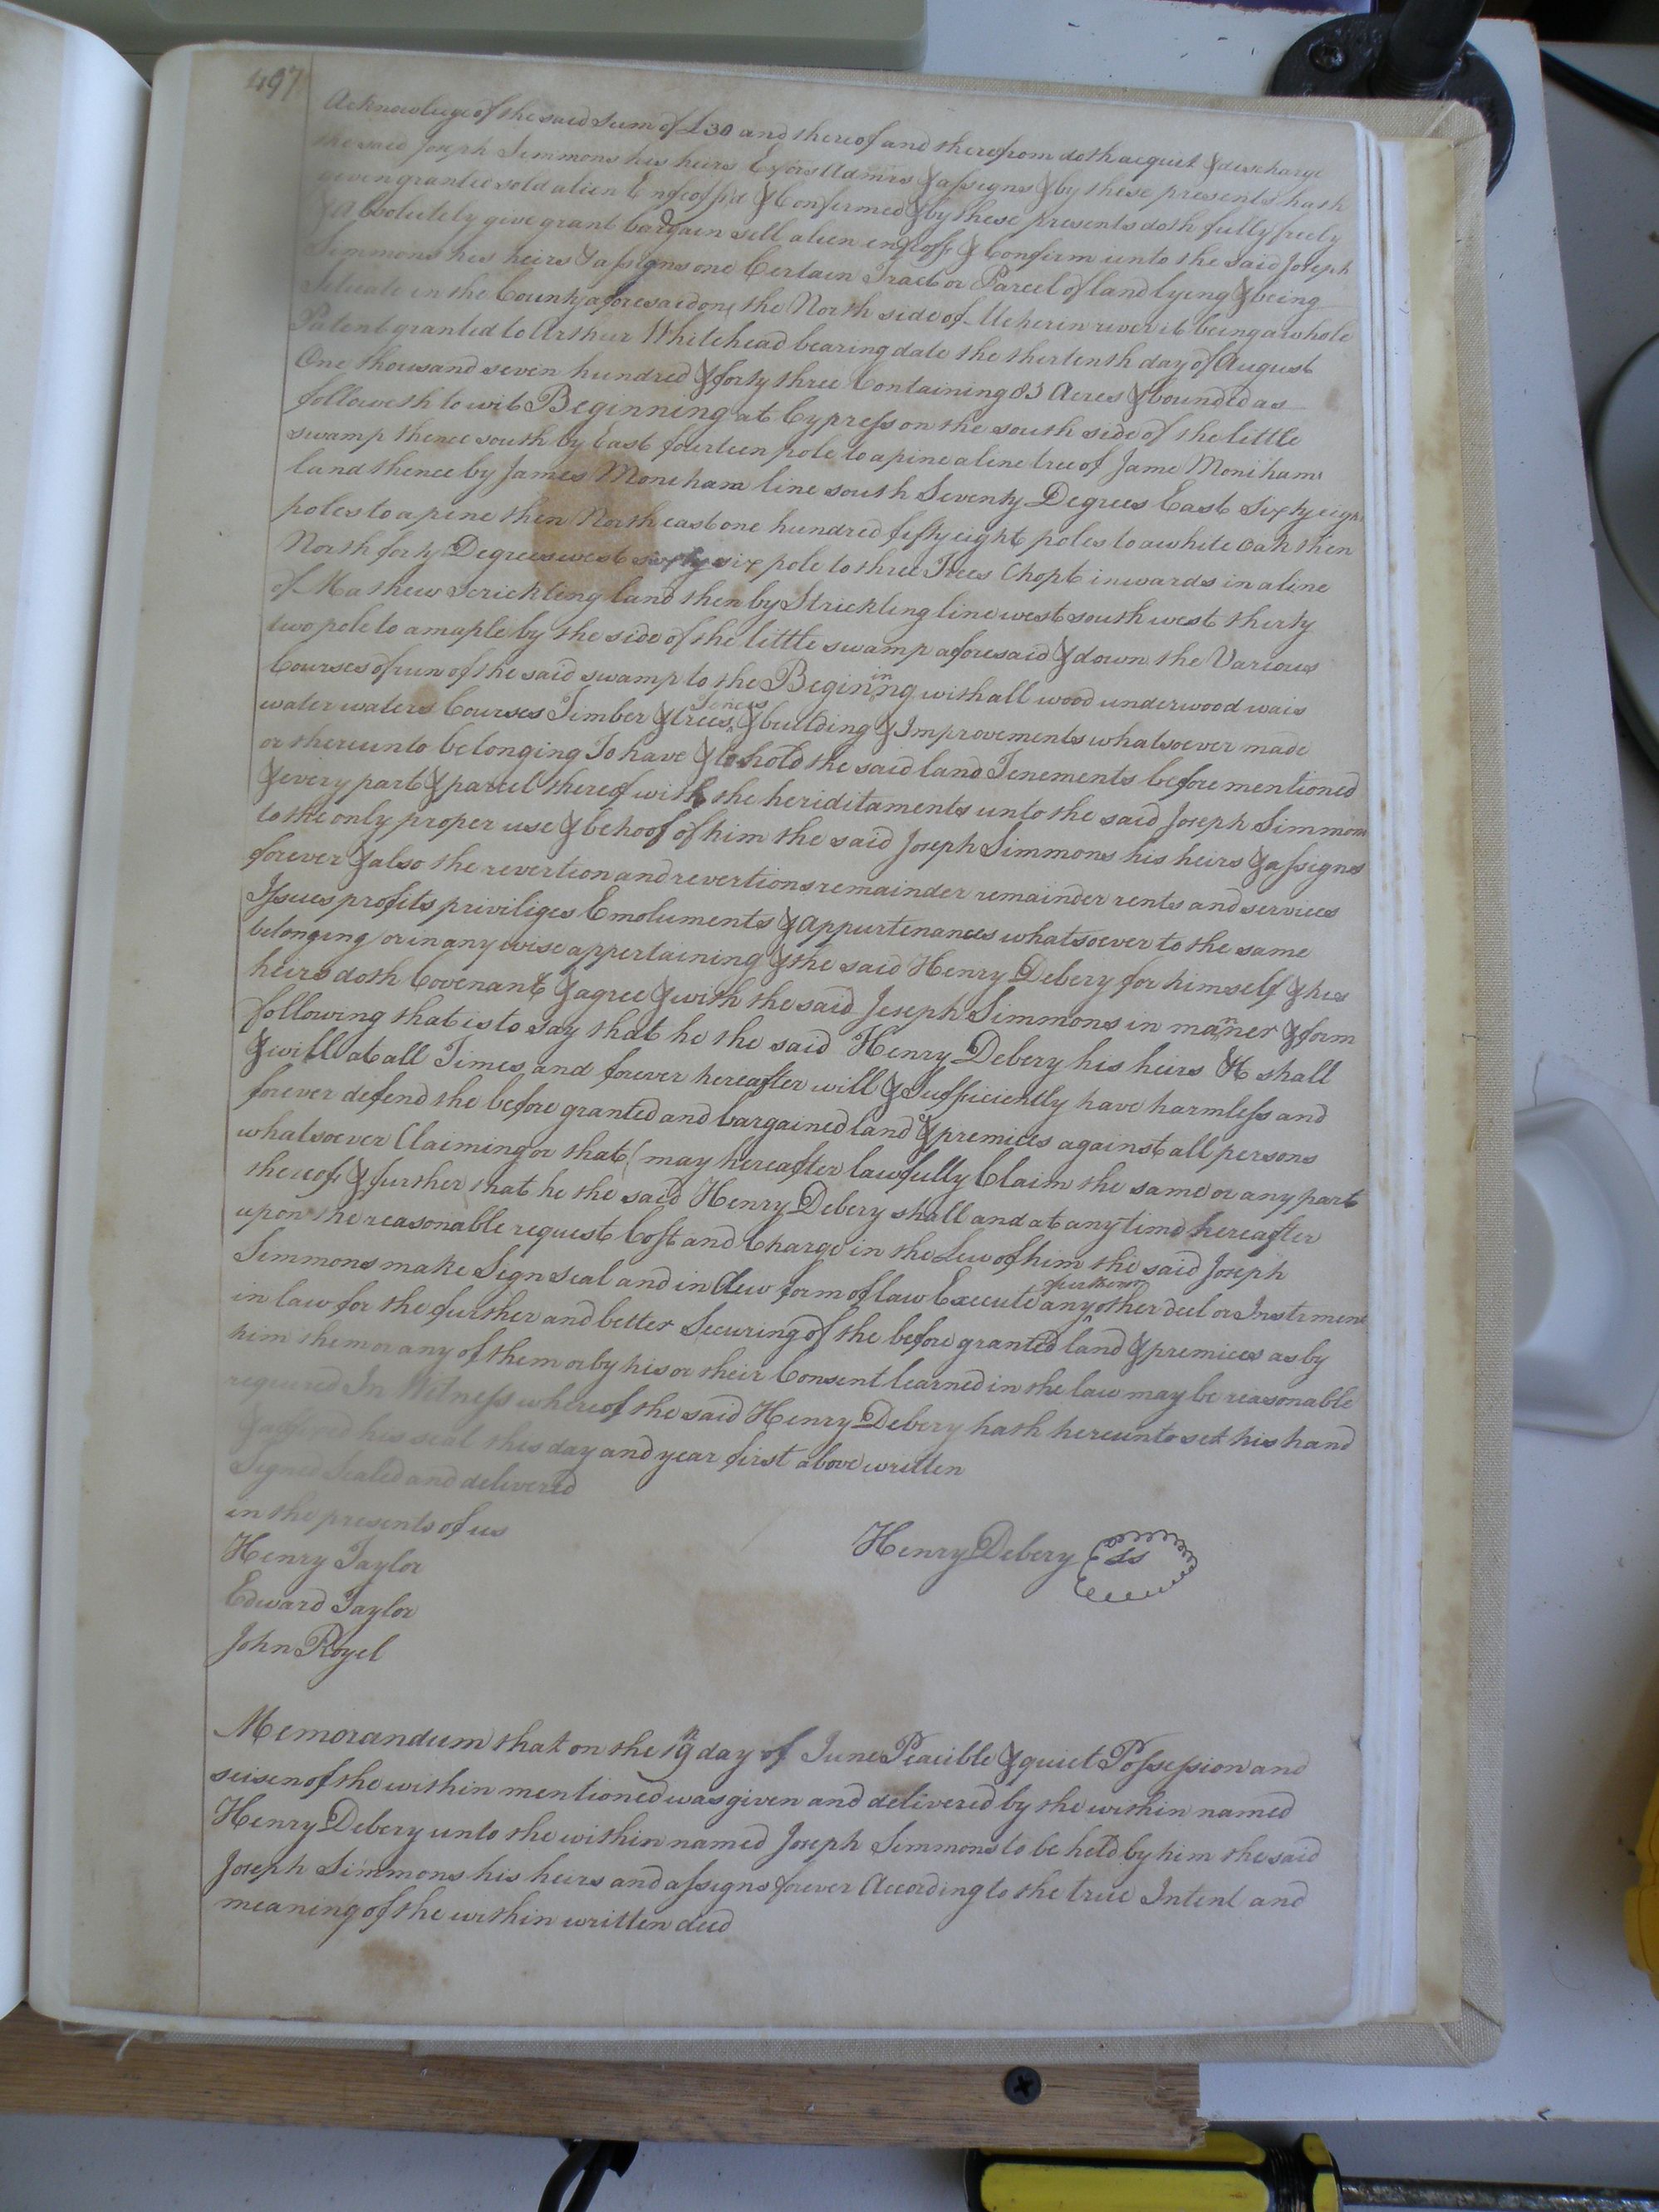 497
Acknowlege of the said Sum of £30 and thereof and therefrom doth acquit & discharge
the said Joseph Simmons his heirs Exors Admrs & assigns & by these presents hath
given granted sold alien Enfeoffed & Confirmed & by these presents doth fully freely
& Absolutely give grant bargain sell alien enfeoff & Confirm unto the said Joseph
Simmons his heirs & assigns one Certain Tract or Parcel of land lying & being
Situate in the County aforesaid on the North side of Meherin river it being a whole
Patent granted to Arthur Whitehead bearing date the thertenth day of August
One thousand seven hundred & forty three Containing 83 Acres & bounded as
followeth to wit Beginning at Cypress on the south side of the little
swamp thence south by East fourteen pole to a pine a line tree of Jame Monihams
land thence by James Moniham line south Seventy Degrees East Sixty eight
poles to a pine then North east one hundred fifty eight poles to a white oak then
North forty Degrees west sixty six pole to three Trees Chopt inwards in a line
of Mathew Strickling land then by Strickling line west south west thirty
two pole to a maple by the side of the little swamp aforesaid & down the Various
Courses of run of the said swamp to the Begining with all wood underwood wais
water waters Courses Timber & trees fences & building & Improvements whatsoever made
or thereunto belonging To have & to hold the said land Tenements before mentioned
& every part & parcel thereof with the heriditaments unto the said Joseph Simmons
to the only proper use & behoof of him the said Joseph Simmons his heirs & assigns
forever & also the revertion and revertions remainder remainder rents and services
Issues profits priviliges Emoluments & Appurtenances whatsoever to the same
belonging or in any wise appertaining & the said Henry Debery for himself & his
heirs doth Covenant & agree & with the said Joseph Simmons in manner & form
following that is to say that he the said Henry Debery his heirs &c shall
& will at all Times and forever hereafter will & Sufficiently have harmless and
forever defend the before granted and bargained land & premices against all persons
whatsoever Claiming or that may hereafter lawfully Claim the same or any part
thereof & further that he the said Henry Debery shall and at any time hereafter
upon the reasonable request Cost and Charge in the Lew of him the said Joseph
Simmons make Sign seal and in dew form of law Execute any further other deel or Instrment
in law for the further and better Securing of the before granted land & premices as by
him them or any of them or by his or their Consent learned in the law may be reasonable
required In Witness whereof the said Henry Debery hath hereunto set his hand
& affixed his seal this day and year first above written
Signed Sealed and delivered
in the presents of us
Henry Taylor
Henry Debery SS
Edward Taylor
John Royel
Memorandum that on the 19th day of June Peacible & quiet Possession and
seisen of the within mentioned was given and delivered by the within named
Henry Debery unto the within named Joseph Simmons to be held by him the said
Joseph Simmons his heirs and assigns forever According to the true Intent and
meaning of the within written deed